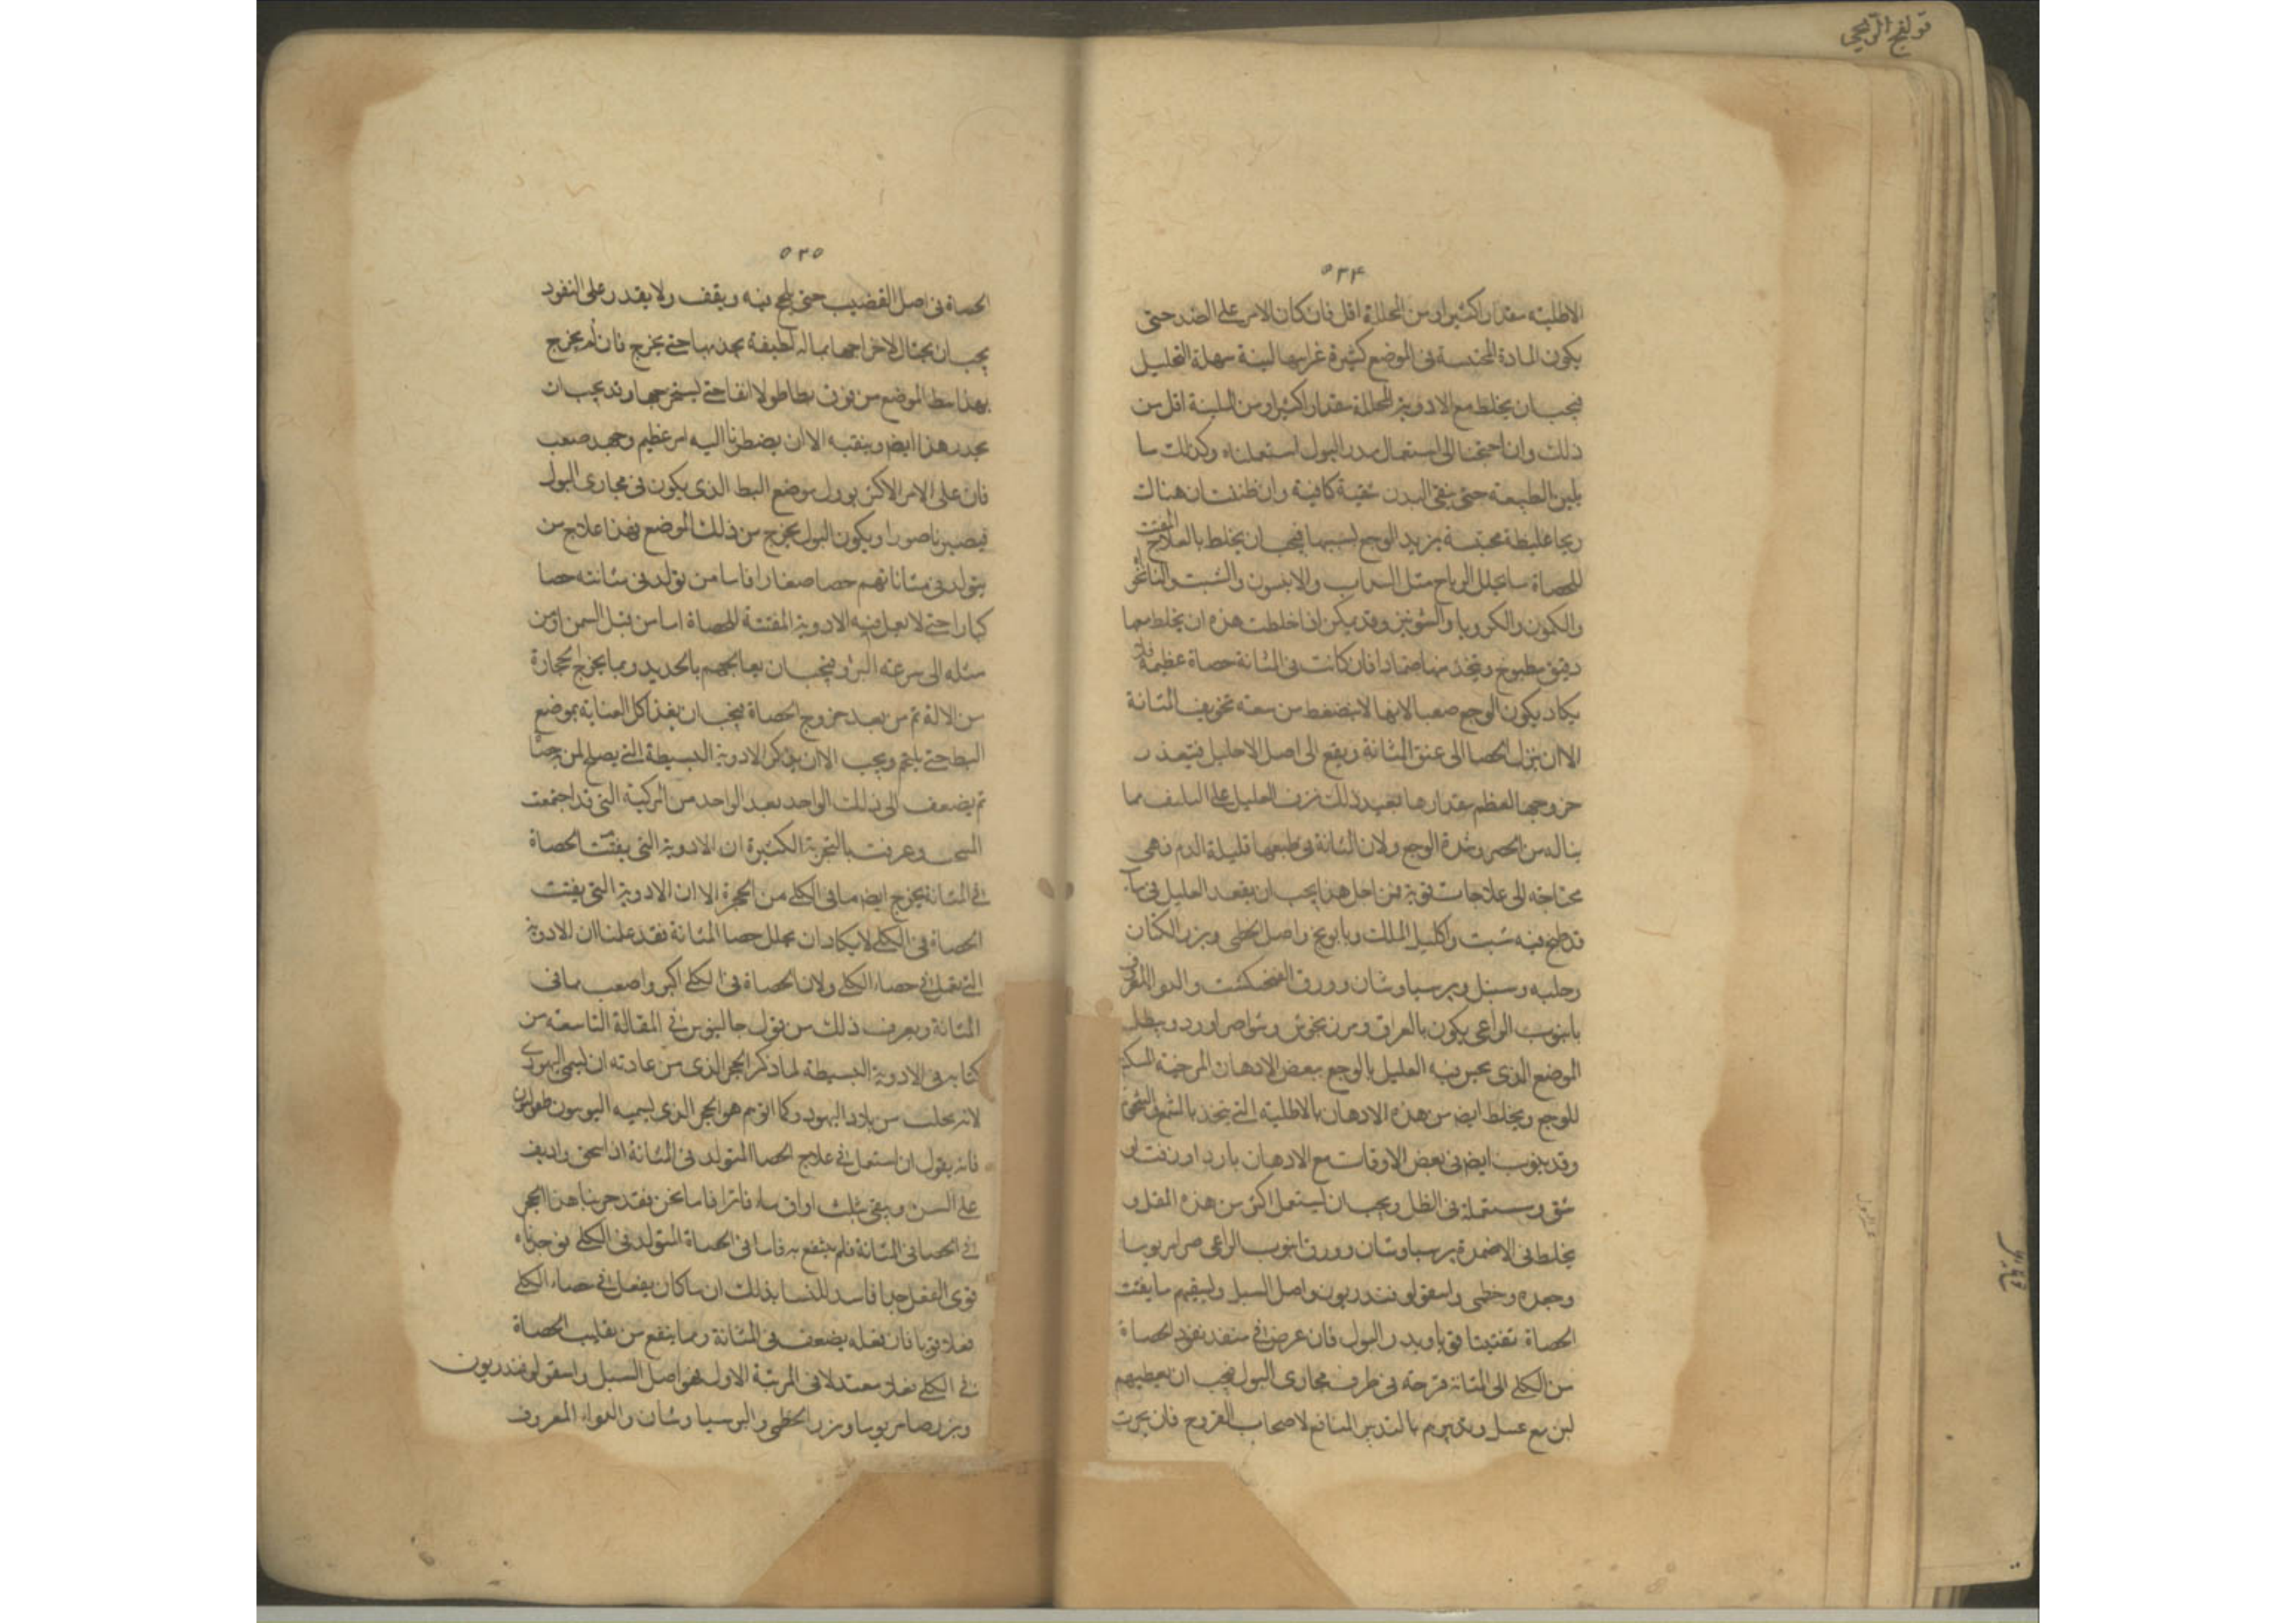 قولنج الريحي
٥٣٤
الاطلية مقدار اكثر او من المحللة اقل فان كان الامر على الضد حتى
يكون المادة المحتبسة في الموضع كثيرة غير انها لينة سهلة التحليل
فيجب ان يخلط مع الادوية المحللة مقدار اكثر او من الملينة اقل من
ذلك وان احتجنا الى استعمال مدر البول استعملناه وكذلك ما
يلين الطبيعة حتى ينقى البدن تنقية كافية وان ظننت ان هناك
ريحا غليظة محتبسة يزيد الوجع لسببها فيجب ان يخلط بالعلاج المفتت
للحصاة ما يحلل الرياح مثل السداب والانيسون والشبت
والكمون والكرويا والشونيز وقد يمكن اذا خلطت هذه ان يخلط معها
دقيق مطبوخ ويتخذ منها ضمادا فان كانت في المثانة حصاة عظيمة فلا
يكاد يكون الوجع صعبا لانها لا ينضغط من سعة تجويف المثانة
الا ان ينزل الحصا الى عنق المثانة ويقع الى اصل الاحليل فيتعذر
خروجها لعظم مقدارها فعند ذلك نزف العليل على التلف مما
يناله من الحصر وشدة الوجع ولان المثانة في طبعها قليلة الدم فهي
محتاجة الى علاجات قوية فمن اجل هذا يجب ان يقعد العليل في ماء
قد طبخ فيه شبت واكليل الملك وبابونج واصل الخطمى وبزر الكتان
وحلبة وسنبل وبرسياوشان وورق الفنجنكشت والدوا المعروف
الراعي يكون بالعراق ومرزنجوش ويطلى
الموضع الذي يحس فيه العليل بالوجع ببعض الادهان المرخية المسكنة
للوجع ويخلط ايضا من هذه الادهان بالاطلية التي يتخذ بالشمع والشحم
وقد يذوب ايضا في بعض الاوقات مع الادهان بارزد او زفت او
في الظل ويجب ان يستعمل اكثر من هذه المقل و
يخلط في الاضمدة برسياوشان وورق الراعي
وجعده وخطمى واسقولوفندريون واصل السنبل ولسقيهم ما يفتت
الحصاة تفتيتا قويا ويدر البول فان عرض في منفذ نفوذ الحصاة
من الكلى الى المثانة قرحة في طرف مجارى البول فيجب ان نعطيهم
لبن مع عسل وتدبيرهم بالتدبير النافع لاصحاب القروح فان جرت
٥٣٥
الحصاة في اصل القضيب حتى يلحج فيه ويقف ولا يقدر على النفوذ
يجب ان يحتال لاخراجها بالة لطيفة يجذبها حتى يخرج فان لم يخرج
بهذا بط الموضع من فوق بطا طولا حتى ليستخرجها وقد يجب ان
يحذر هذا ايضا ويتقيه الا ان يضطرنا اليه امر عظيم وجهد صعب
فان على الامر الاكثر يؤول موضع البط الذي يكون في مجارى البول
فيصير ناصورا ويكون البول يخرج من ذلك الموضع فهذا علاج من
يتولد في مثاناتهم حصا صغار فاما من تولد في مثانته حصا
كبارا حتى لا يعمل فيه الادوية المفتتة للحصاة اما من قبل السمن او من
مثله الى سرعة البرؤ فيجب ان يعالجهم بالحديد وبما يخرج الحجارة
من الالة ثم من بعد خروج الحصاة فيجب ان يعنى كل العناية بموضع
البط حتى يلتحم ويجب الان ان يذكر الادوية البسيطة التي يصلح لمن
ثم يضعف الى ذلك الواحد بعد الواحد من المركبة التي قد اجتمعت
وعرفت بالتجربة الكثيرة ان الادوية التي يفتت الحصاة
في المثانة يخرج ايضا ما في الكلى من الحجرة الا ان الادوية التي يفتت
الحصاة في الكلى لا يكاد ان يحلل حصا المثانة فقد علمنا ان الادوية
التي يعمل في حصاء الكلى ولان الحصاة في الكلى اكبر واصعب مما في
المثانة ويعرف ذلك من قول جالينوس في المقالة التاسعة من
كتابه في الادوية البسيطة لما ذكر الحجر الذي من عادته ان يسمى اليهودى
لانه يجلب من بلاد اليهود وكما اتوهم هو الحجر الذي يسميه اليونانيون
فانه يقول ان استعمل في علاج الحصا المتولد في المثانة اذا سحق واديف
على المسن وسقى بثلث اواق ماء فاترا فاما نحن فقد جربنا هذا الحجر
في الحصا في المثانة فلم ينتفع به فاما في الحصاة المتولد في الكلى فوجدناه
قوى الفعل جدا بذلك ان ما كان يفعل في حصاء الكلى
فعلا قويا فان فعله يضعف في المثانة ومما ينفع من تقليب الحصاة
في الكلى فعلا معتدلا في المرتبة الاولى فهو اصل السنبل واسقولوفندريون
وبزر وبزر الخطمى والبرسياوشان والدواء المعروف